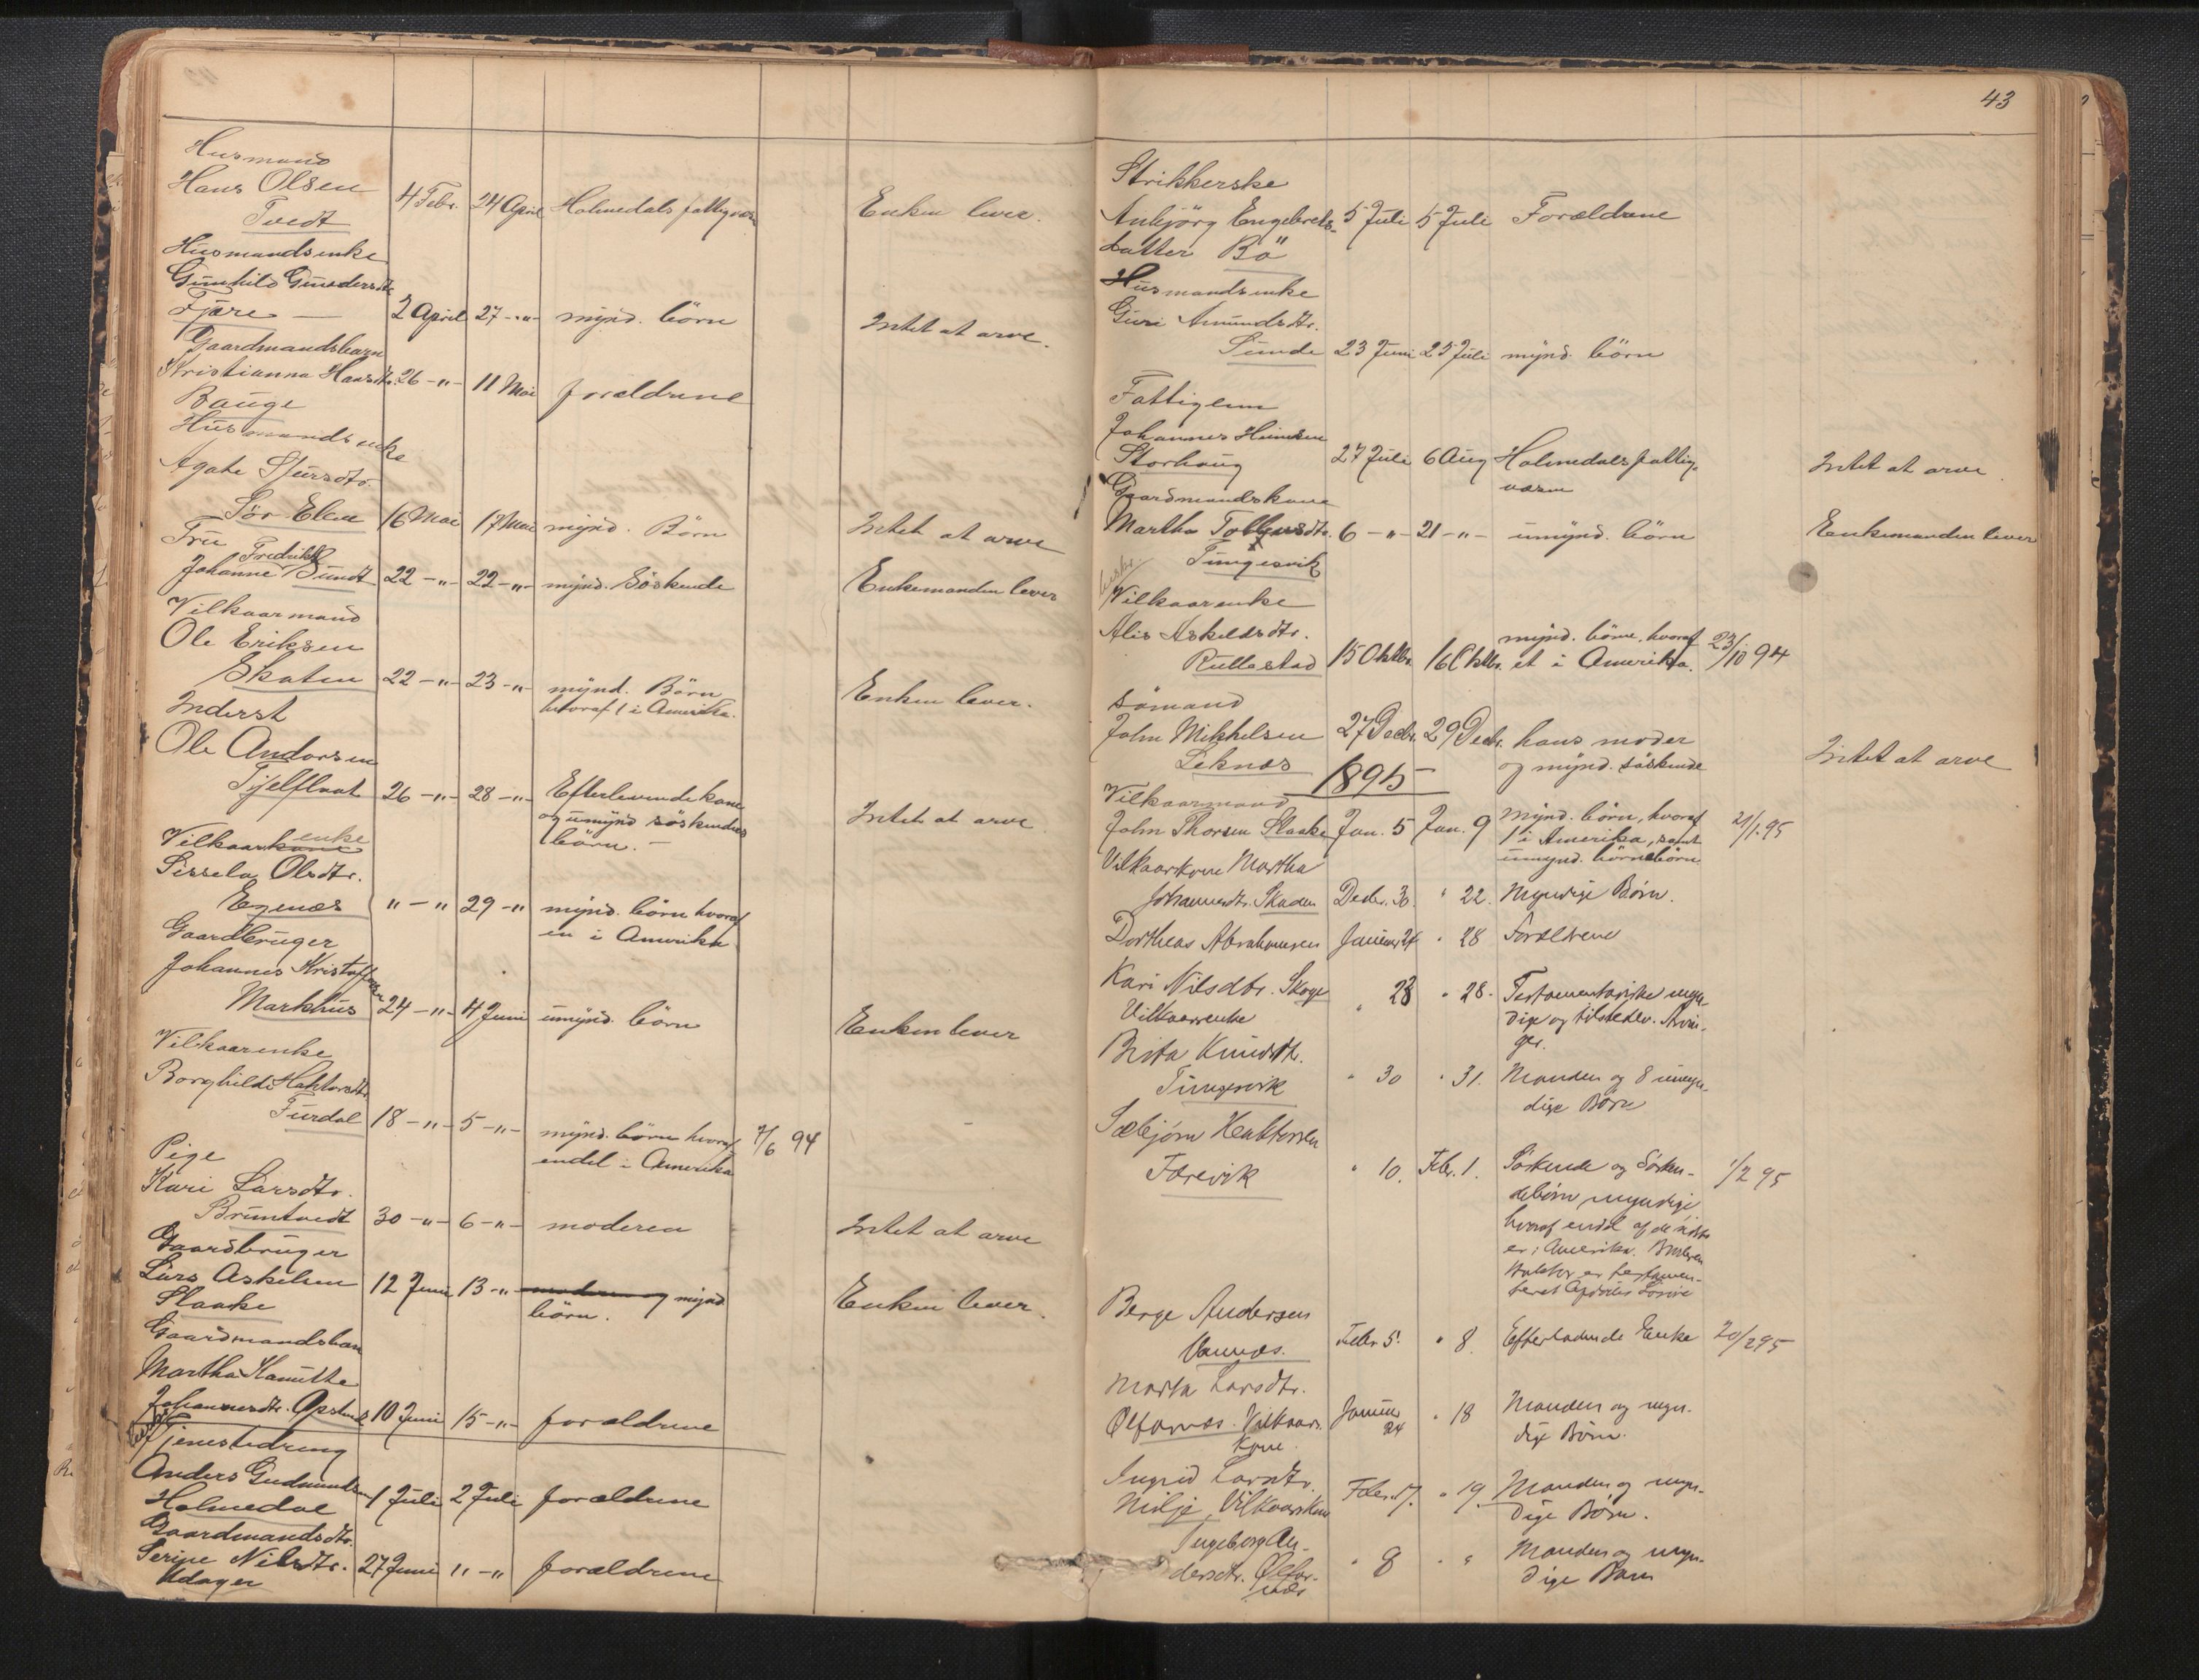 43
Husmand
Hans Olsen
Tvedt
4 Febr. 24 April Holmedals fattigvæsen
Enken lever.
Husmandsenke
Gunhild Gundersdtr.
Fjære — 2 April 27 -"- mynd. börn
Intet at arve.
Gaardmandsbarn
Kristianna Hansdtr. 26 -"- 11 Mai forældrene
Bauge
Husmandsenke
Agate Sjursdtr.
Sör Elen 16 Mai 17 Mai mynd. Börn
Intet at arve
Fru
Johanne Fredrikke Sundt 22 -"- 22 -"- mynd. Söskende
Enkemanden lever
Vilkaarmand
Ole Eriksen
Skaten 22 -"- 23 -"- mynd. Börn
hvoraf 1 i Amerika.
Enken lever.
Inderst
Ole Andorsen
Tjelflaat 26 -"- 28 -"- Efterlevende kone
og umynd söskendes
börn. —
Intet at arve
Vilkaarkone enke
Sissela Olsdtr.
Egenæs " - " 29 -" mynd. börn hvoraf
en i Amerika
Gaardbruger
Johannes Kristoffersen
Markhus 24 -"- 4 Juni umynd. börn
Enken lever
Vilkaarenke
Borghilde Haktorsdtr.
Furdal 18 -"- 5 -"- mynd. börn hvoraf
endel i Amerika
7/6 94
Pige
Kari Larsdtr.
Bruntvedt 30 -"- 6 -"- moderen
Intet at arve
Gaardbruger
Lars Askelsen 12 Juni 13 -" moderen og mynd.
Slaake
börn.
Enken lever.
Gaardmandsban
Martha Kamitte
Johannesdtr. Opsund 10 Juni 15 -"- forældrene
Tjenestedreng
Anders Gudmundsen 1 Juli 2 Juli forældrene
Holmedal
Gaardmandsdtr.
Serine Nilsdtr. 27 Juni " - " forældrene
Udager
Strikkerske
Anbjörg Engebrets- 5 Juli 5 Juli Forældrene
datter Bö
Husmandsenke
Guri Amundsdtr.
Sunde 23 Juni 25 Juli mynd. börn
Fattiglem
Johannes
Storhaug 27 Juli 6 Aug Holmedals fattig-
væsen
Intet at arve
Gaardmandskone
Martha Tollfusdtr. 6 -"- 21 -"- umynd. börn
Tungesvik
Enkemanden lever
Vilkaarenke
Alis Askeldsdtr.
Rullestad 15 Oktbr. 16 Oktbr. mynd. börn, hvoraf
et i Amerika.
23/10 94
Sömand
John Mikkelsen 27 Decbr. 29 Decbr. hans moder
Leknæs
og mynd. söskende
Intet at arve
1895
Vilkaarmand
John Thorsen Slaake Jan. 5 Jan. 9 mynd. börn, hvoraf
1 i Amerika, samt
umynd. börnebörn
21/1 95
Vilkaarkone Martha
Johannesdtr. Skaden Decbr. 30. " 22. Myndige Børn.
Dortheas Abrahamsen Januar 24 " 28 Forældrene
Kari Nilsdtr. Skoge " 28 " 28. Testamentariske myn-
Vilkaarenke
dige og tilstedev. Arvin-
ger.
Brita Knudsdtr.
Tungesvik " 30 " 31. Manden og 8 umyn-
dige Børn
Sæbjørn Haktorsen
Færevik " 10. Febr. 1. Søskende og Søsken-
debørn myndige
hvoraf endel af de sidste
er i Amerika.
1/2 95
Berge Andersen
Vannæs. Febr 5. " 8. Efterladende Enke
20/2 95
Marta Larsdtr.
Ølfarnæs. Vilkaars- Januar 24 " 18 Manden og myn-
kone.
dige Børn.
Ingrid Larsdtr.
Milje, Vilkaarskone Febr. 17. " 19. Manden og myn-
dige Børn.
Ingeborg An-
dersdtr. Ølfar-
næs " 8 " " Manden og myn-
dige Børn